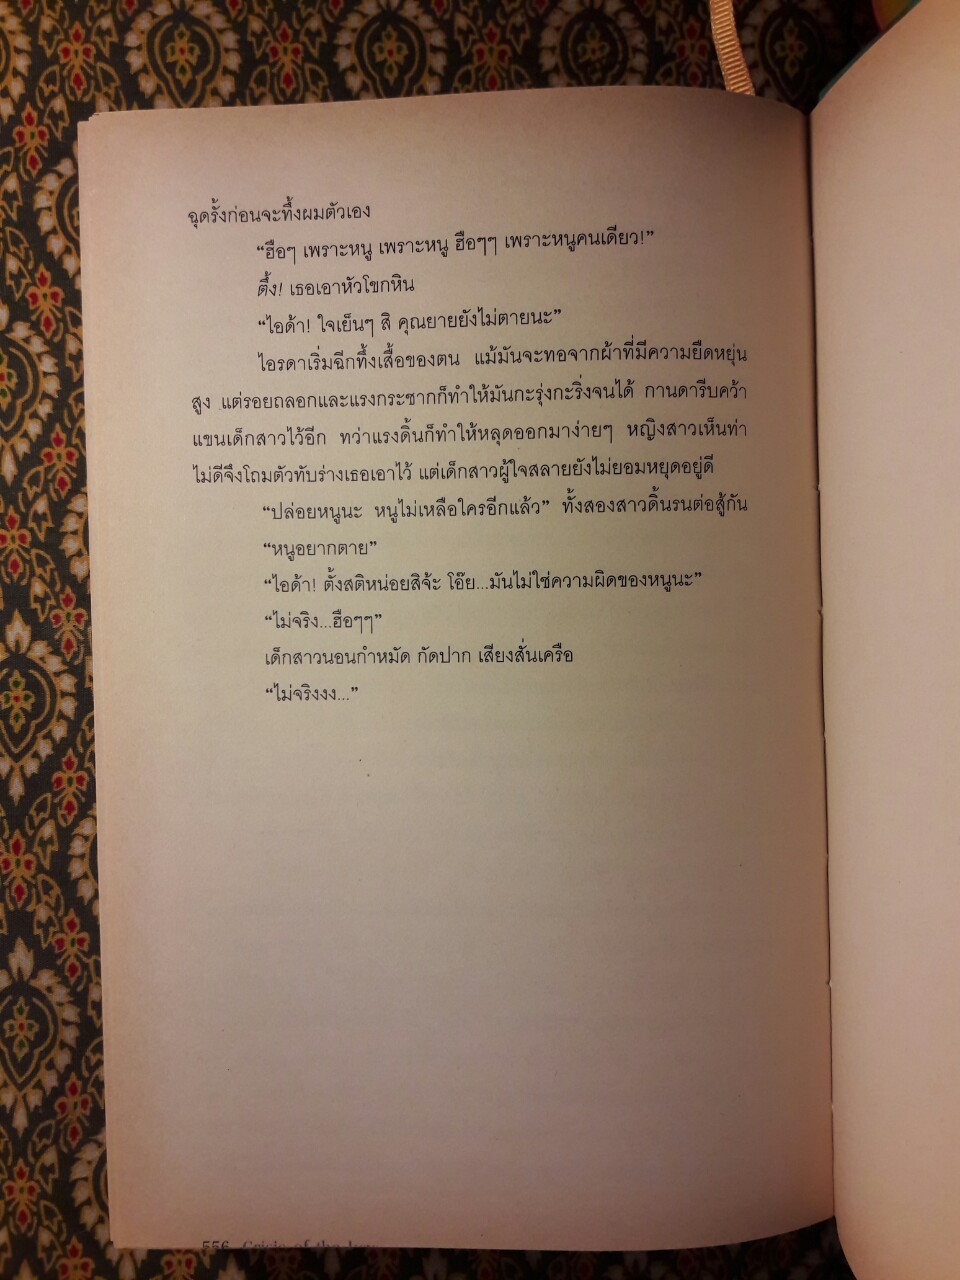 ฉุดรั้งก่อนจะทึ้งผมตัวเอง
“ฮือๆ เพราะหนู เพราะหนู ฮือๆๆ เพราะหนูคนเดียว!”
ตึ้ง! เธอเอาหัวโขกหิน
“ไอด้า! ใจเย็นๆ สิ คุณยายยังไม่ตายนะ”
ไอรดาเริ่มฉีกทึ้งเสื้อของตน แม้มันจะทอจากผ้าที่มีความยืดหยุ่น
สูง แต่รอยถลอกและแรงกระชากก็ทำให้มันกะรุ่งกะริ่งจนได้ กานดารีบคว้า
แขนเด็กสาวไว้อีก ทว่าแรงดิ้นก็ทำให้หลุดออกมาง่ายๆ หญิงสาวเห็นท่า
ไม่ดีจึงโถมตัวทับร่างเธอเอาไว้ แต่เด็กสาวผู้ใจสลายยังไม่ยอมหยุดอยู่ดี
“ปล่อยหนูนะ หนูไม่เหลือใครอีกแล้ว” ทั้งสองสาวดิ้นรนต่อสู้กัน
“หนูอยากตาย”
“ไอด้า! ตั้งสติหน่อยสิจ้ะ โอ๊ย...มันไม่ใช่ความผิดของหนูนะ”
“ไม่จริง...ฮือๆๆ”
เด็กสาวนอนกำหมัด กัดปาก เสียงสั่นเครือ
“ไม่จริงงง...”
556 Crisis of the